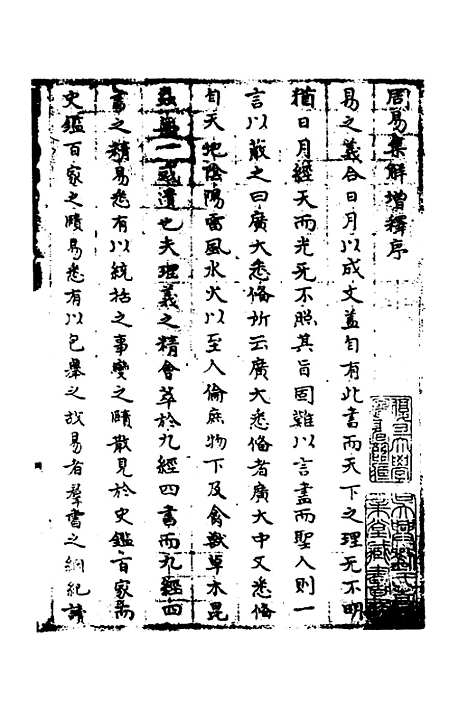 周易集解增釋序
易之義合日月以成文蓋自有此書而天下之理无不明
猶日月經天而光无不照其旨固難以言盡而聖人則一
言以蔽之曰廣大悉俻所云廣大悉俻者廣大中又悉俻
自天地陰陽雷風水火以至人倫庶物下及禽獸草木昆
蟲無一或遺也夫理義之精會萃於九經四書而九經四
書之精易悉有以統括之事變之賾散見於史鑑百家而
史鑑百家之賾易悉有以包舉之故易者羣書之綱紀讀